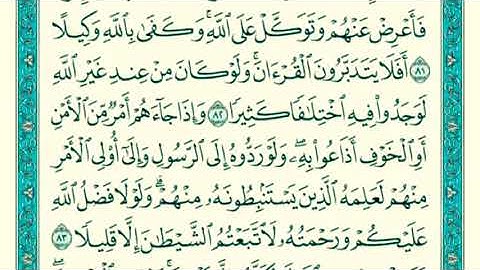 فَأَعْرِضْ عَنْهُمْ وَتَوَكَّلْ عَلَى ٱللَّهِ ۚ وَكَفَىٰ بِٱللَّهِ وَكِيلًا
٨١ أَفَلَا يَتَدَبَّرُونَ ٱلْقُرْءَانَ ۚ وَلَوْ كَانَ مِنْ عِندِ غَيْرِ ٱللَّهِ
لَوَجَدُوا۟ فِيهِ ٱخْتِلَٰفًا كَثِيرًا ٨٢ وَإِذَا جَآءَهُمْ أَمْرٌ مِّنَ ٱلْأَمْنِ
أَوِ ٱلْخَوْفِ أَذَاعُوا۟ بِهِۦ ۖ وَلَوْ رَدُّوهُ إِلَى ٱلرَّسُولِ وَإِلَىٰٓ أُو۟لِى ٱلْأَمْرِ
مِنْهُمْ لَعَلِمَهُ ٱلَّذِينَ يَسْتَنۢبِطُونَهُۥ مِنْهُمْ ۗ وَلَوْلَا فَضْلُ ٱللَّهِ
عَلَيْكُمْ وَرَحْمَتُهُۥ لَٱتَّبَعْتُمُ ٱلشَّيْطَٰنَ إِلَّا قَلِيلًا ٨٣